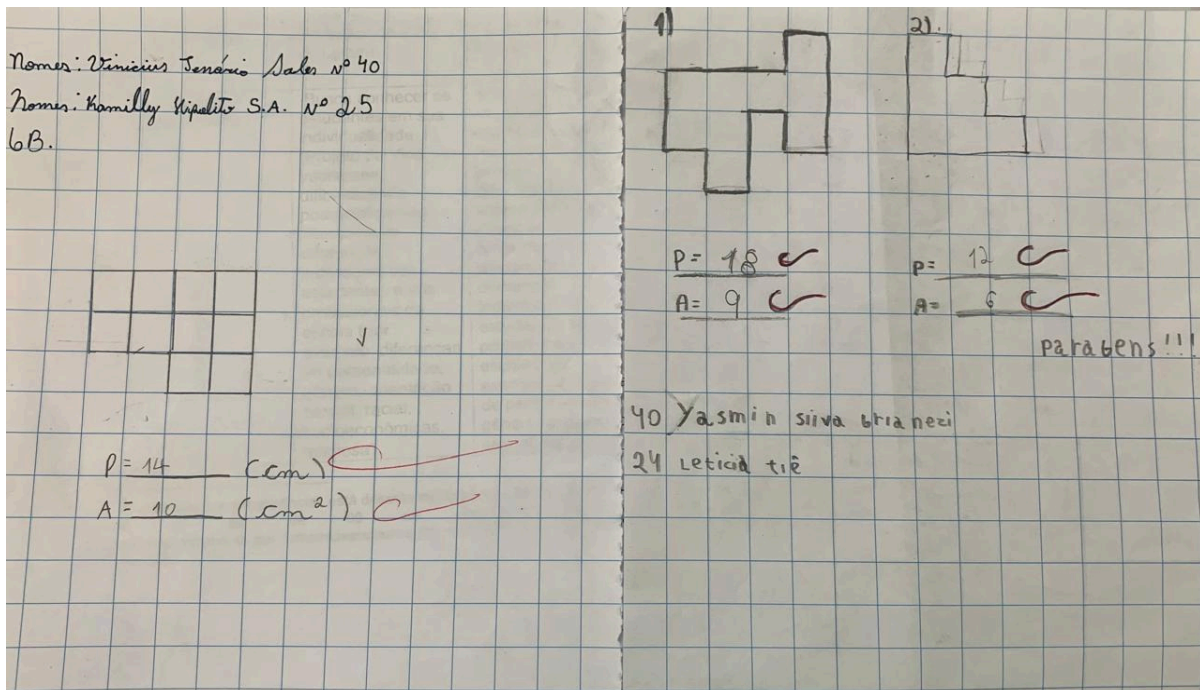 Nomes: Vinicius Tenório Sales Nº 40
Nomes: Kamilly Hipolito S.A. Nº 25
6B.
P = 14 (cm)
A = 10 (cm²)
1)
2).
P= 18
A= 9
P= 12
A= 6
parabens!!!
40 Yasmin silva brianezi
24 Leticia tiê